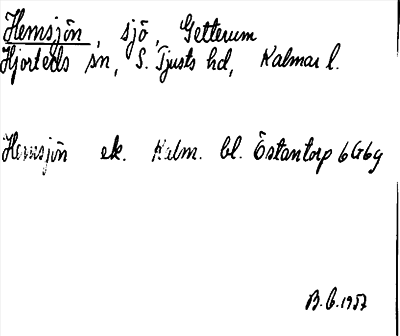 Hemsjön, sjö, Getterum
Hjorteds sn, S. Tjusts hd, Kalmar l.
Hemsjön ek. Kalm. bl. Östantorp 6G6g
B.E. 1957